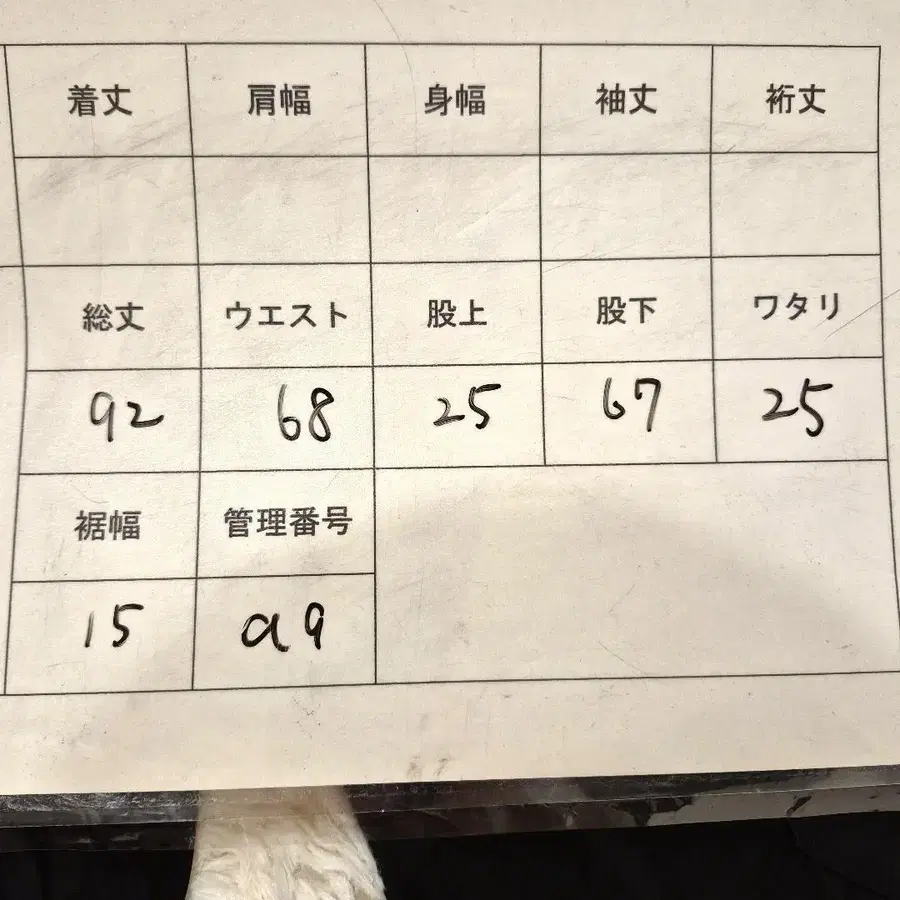 着丈 肩幅 身幅 袖丈 裄丈
総丈 ウエスト 股上 股下 ワタリ
92 68 25 67 25
裾幅 管理番号
15 a9